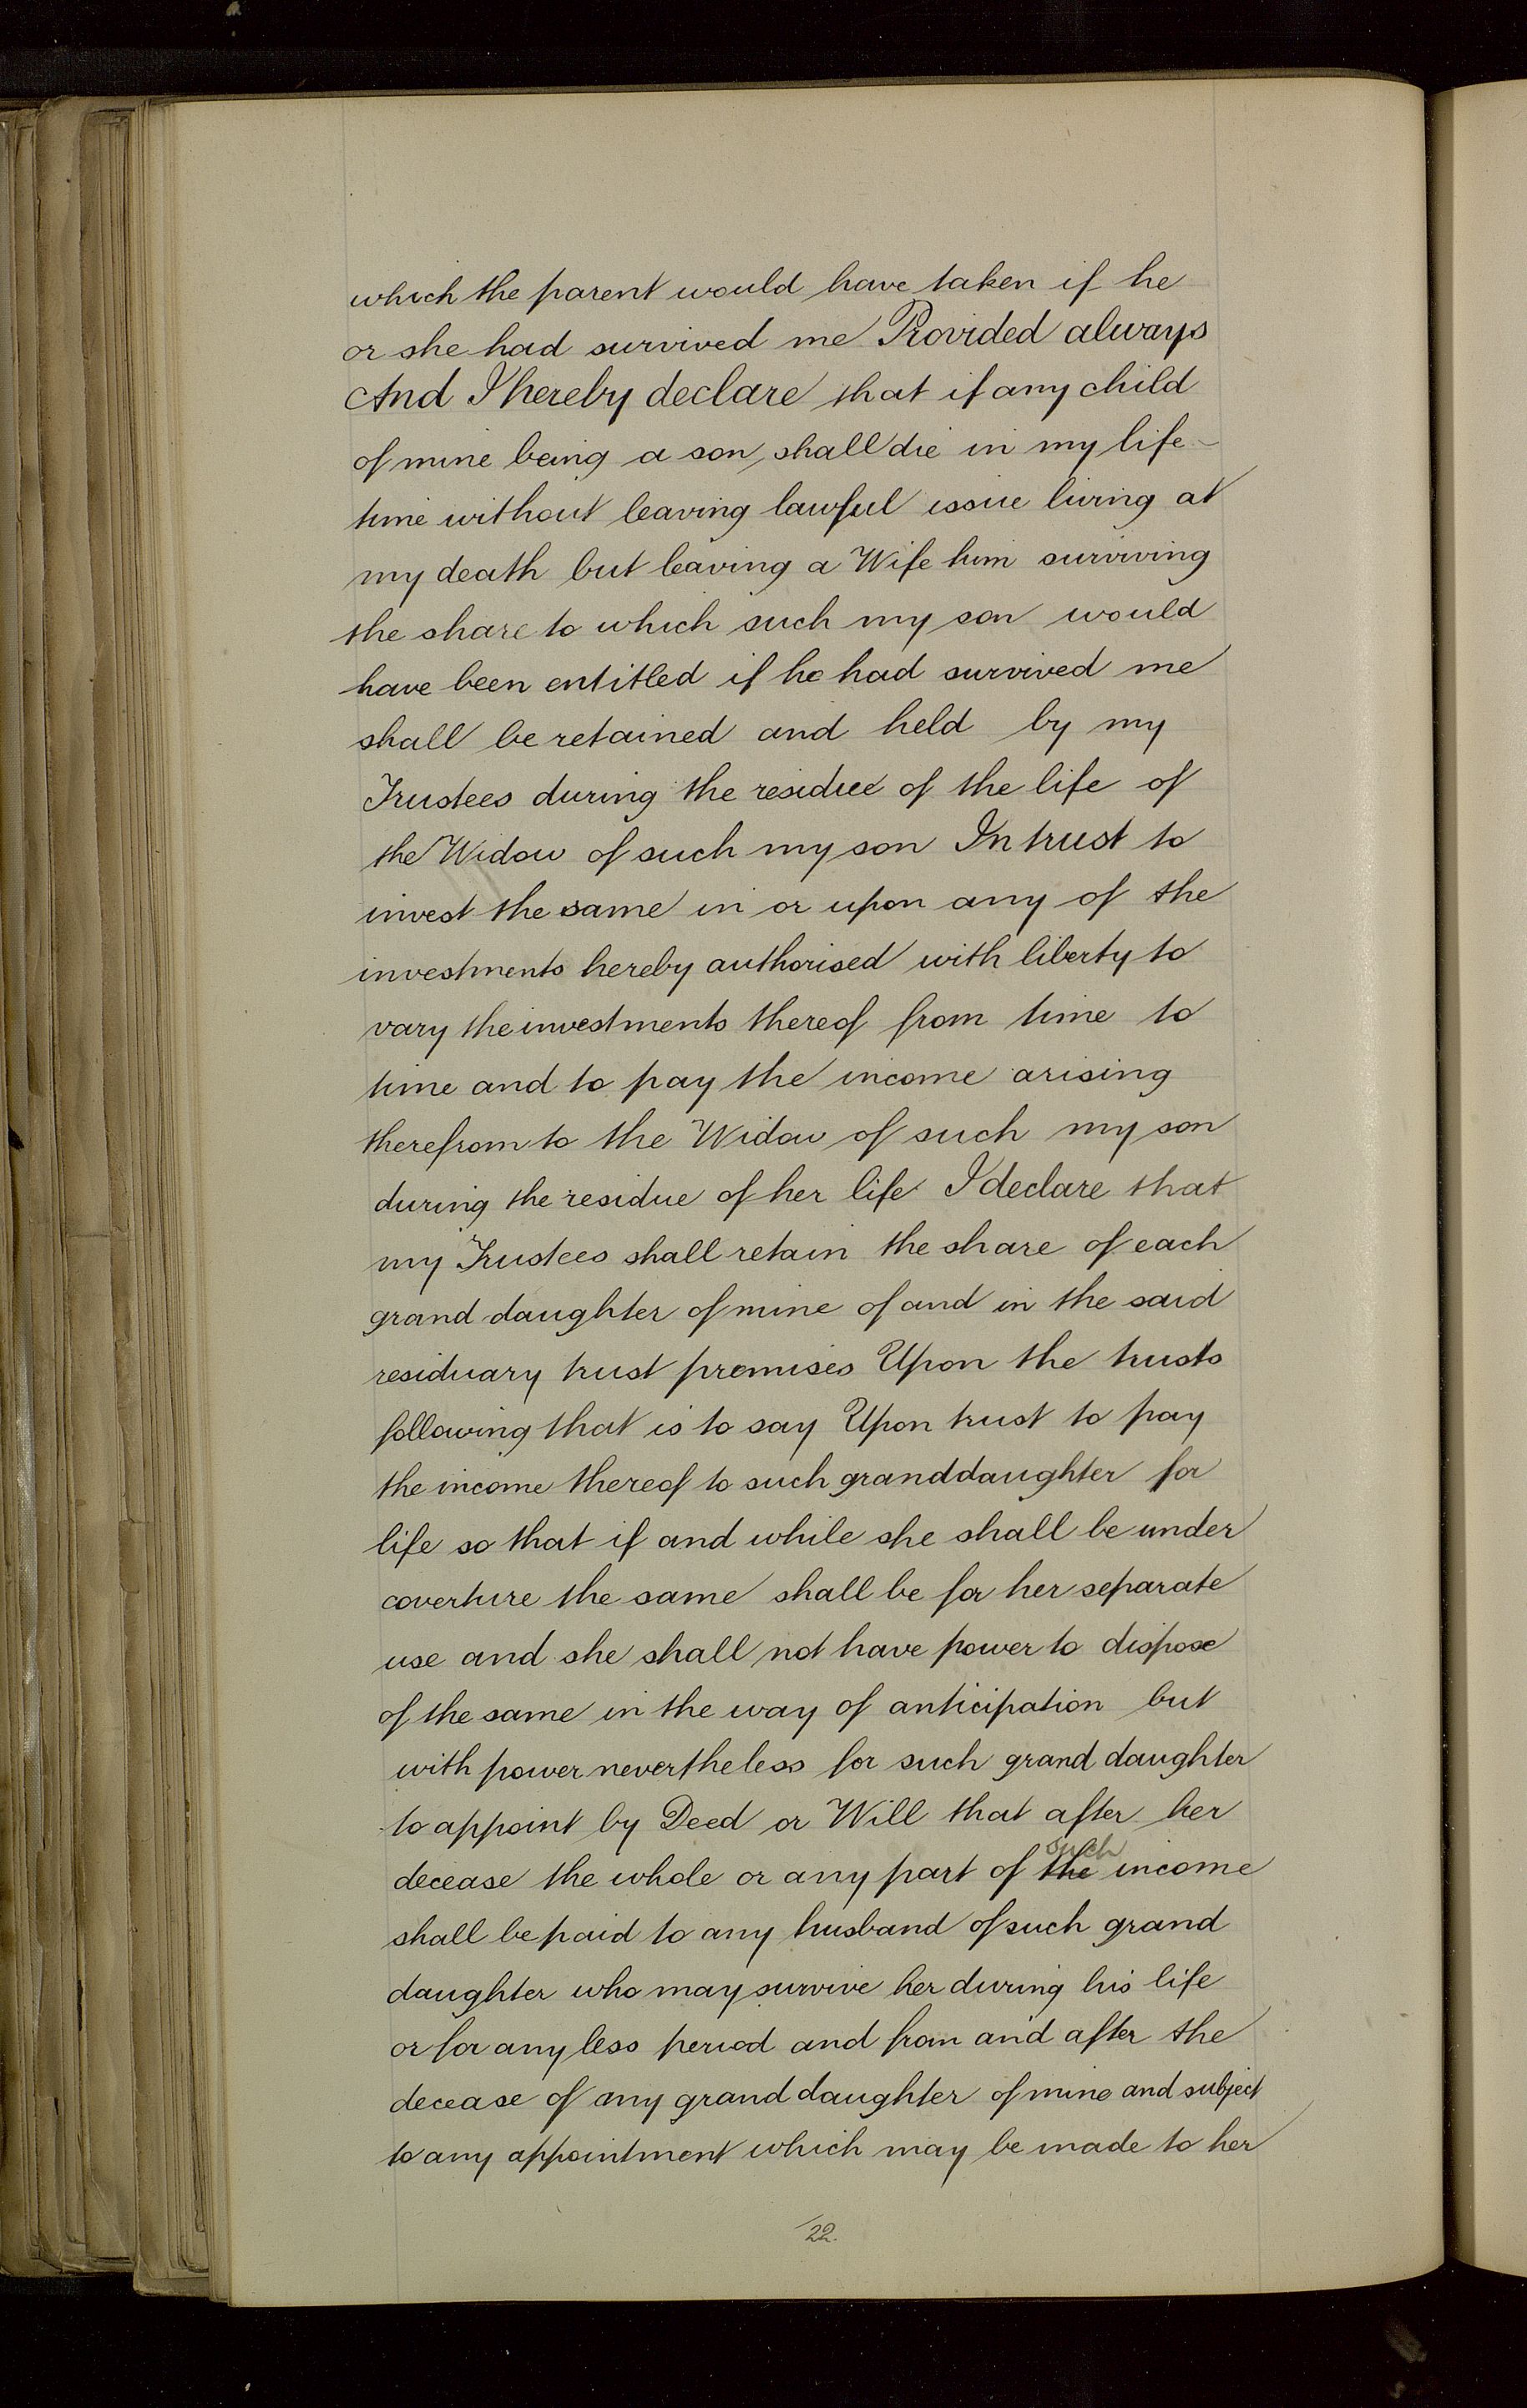 which the parent would have taken if he
or she had survived me Provided always
And I hereby declare that if any child
of mine being a son, shall die in my life-
time without leaving lawful issue living at
my death but leaving a Wife him surviving
the share to which such my son would
have been entitled if he had survived me
shall be retained and held by my
Trustees during the residue of the life of
the Widow of such my son In trust to
invest the same in or upon any of the
investments hereby authorised with liberty to
vary the investments thereof from time to
time and to pay the income arising
therefrom to the Widow of such my son
during the residue of her life I declare that
my Trustees shall retain the share of each
grand daughter of mine of and in the said
residuary trust premises Upon the trusts
following that is to say Upon trust to pay
the income thereof to such granddaughter for
life so that if and while she shall be under
coverture the same shall be for her separate
use and she shall not have power to dispose
of the same in the way of anticipation but
with power nevertheless for such grand daughter
to appoint by Deed or Will that after her
such
decease the whole or any part of the income
shall be paid to any husband of such grand
daughter who may survive her during his life
or for any less period and from and after the
decease of any grand daughter of mine and subject
to any appointment which may be made to her
22.